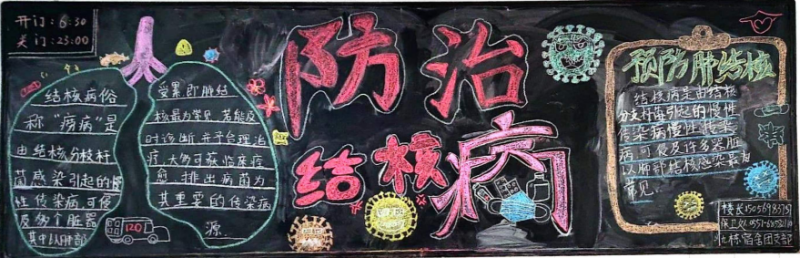 开门:6:30
关门:23:00
结核病俗
称“痨病”是
由结核分枝杆
菌感染引起的慢
性传染病,可侵
及多个脏器
其中以肺部
受累即肺结
核最为常见,若能及
时诊断并予合理治
疗,大多可获临床痊
愈,排出病菌为
其重要的传染病
源.
120
防治
结核病
预防肺结核
结核病是由结核
分支杆菌引起的慢性
传染病慢性传染
病可侵及许多器脏
以肺部结核感染最为
常见.
楼长
保卫处
宿舍团支部